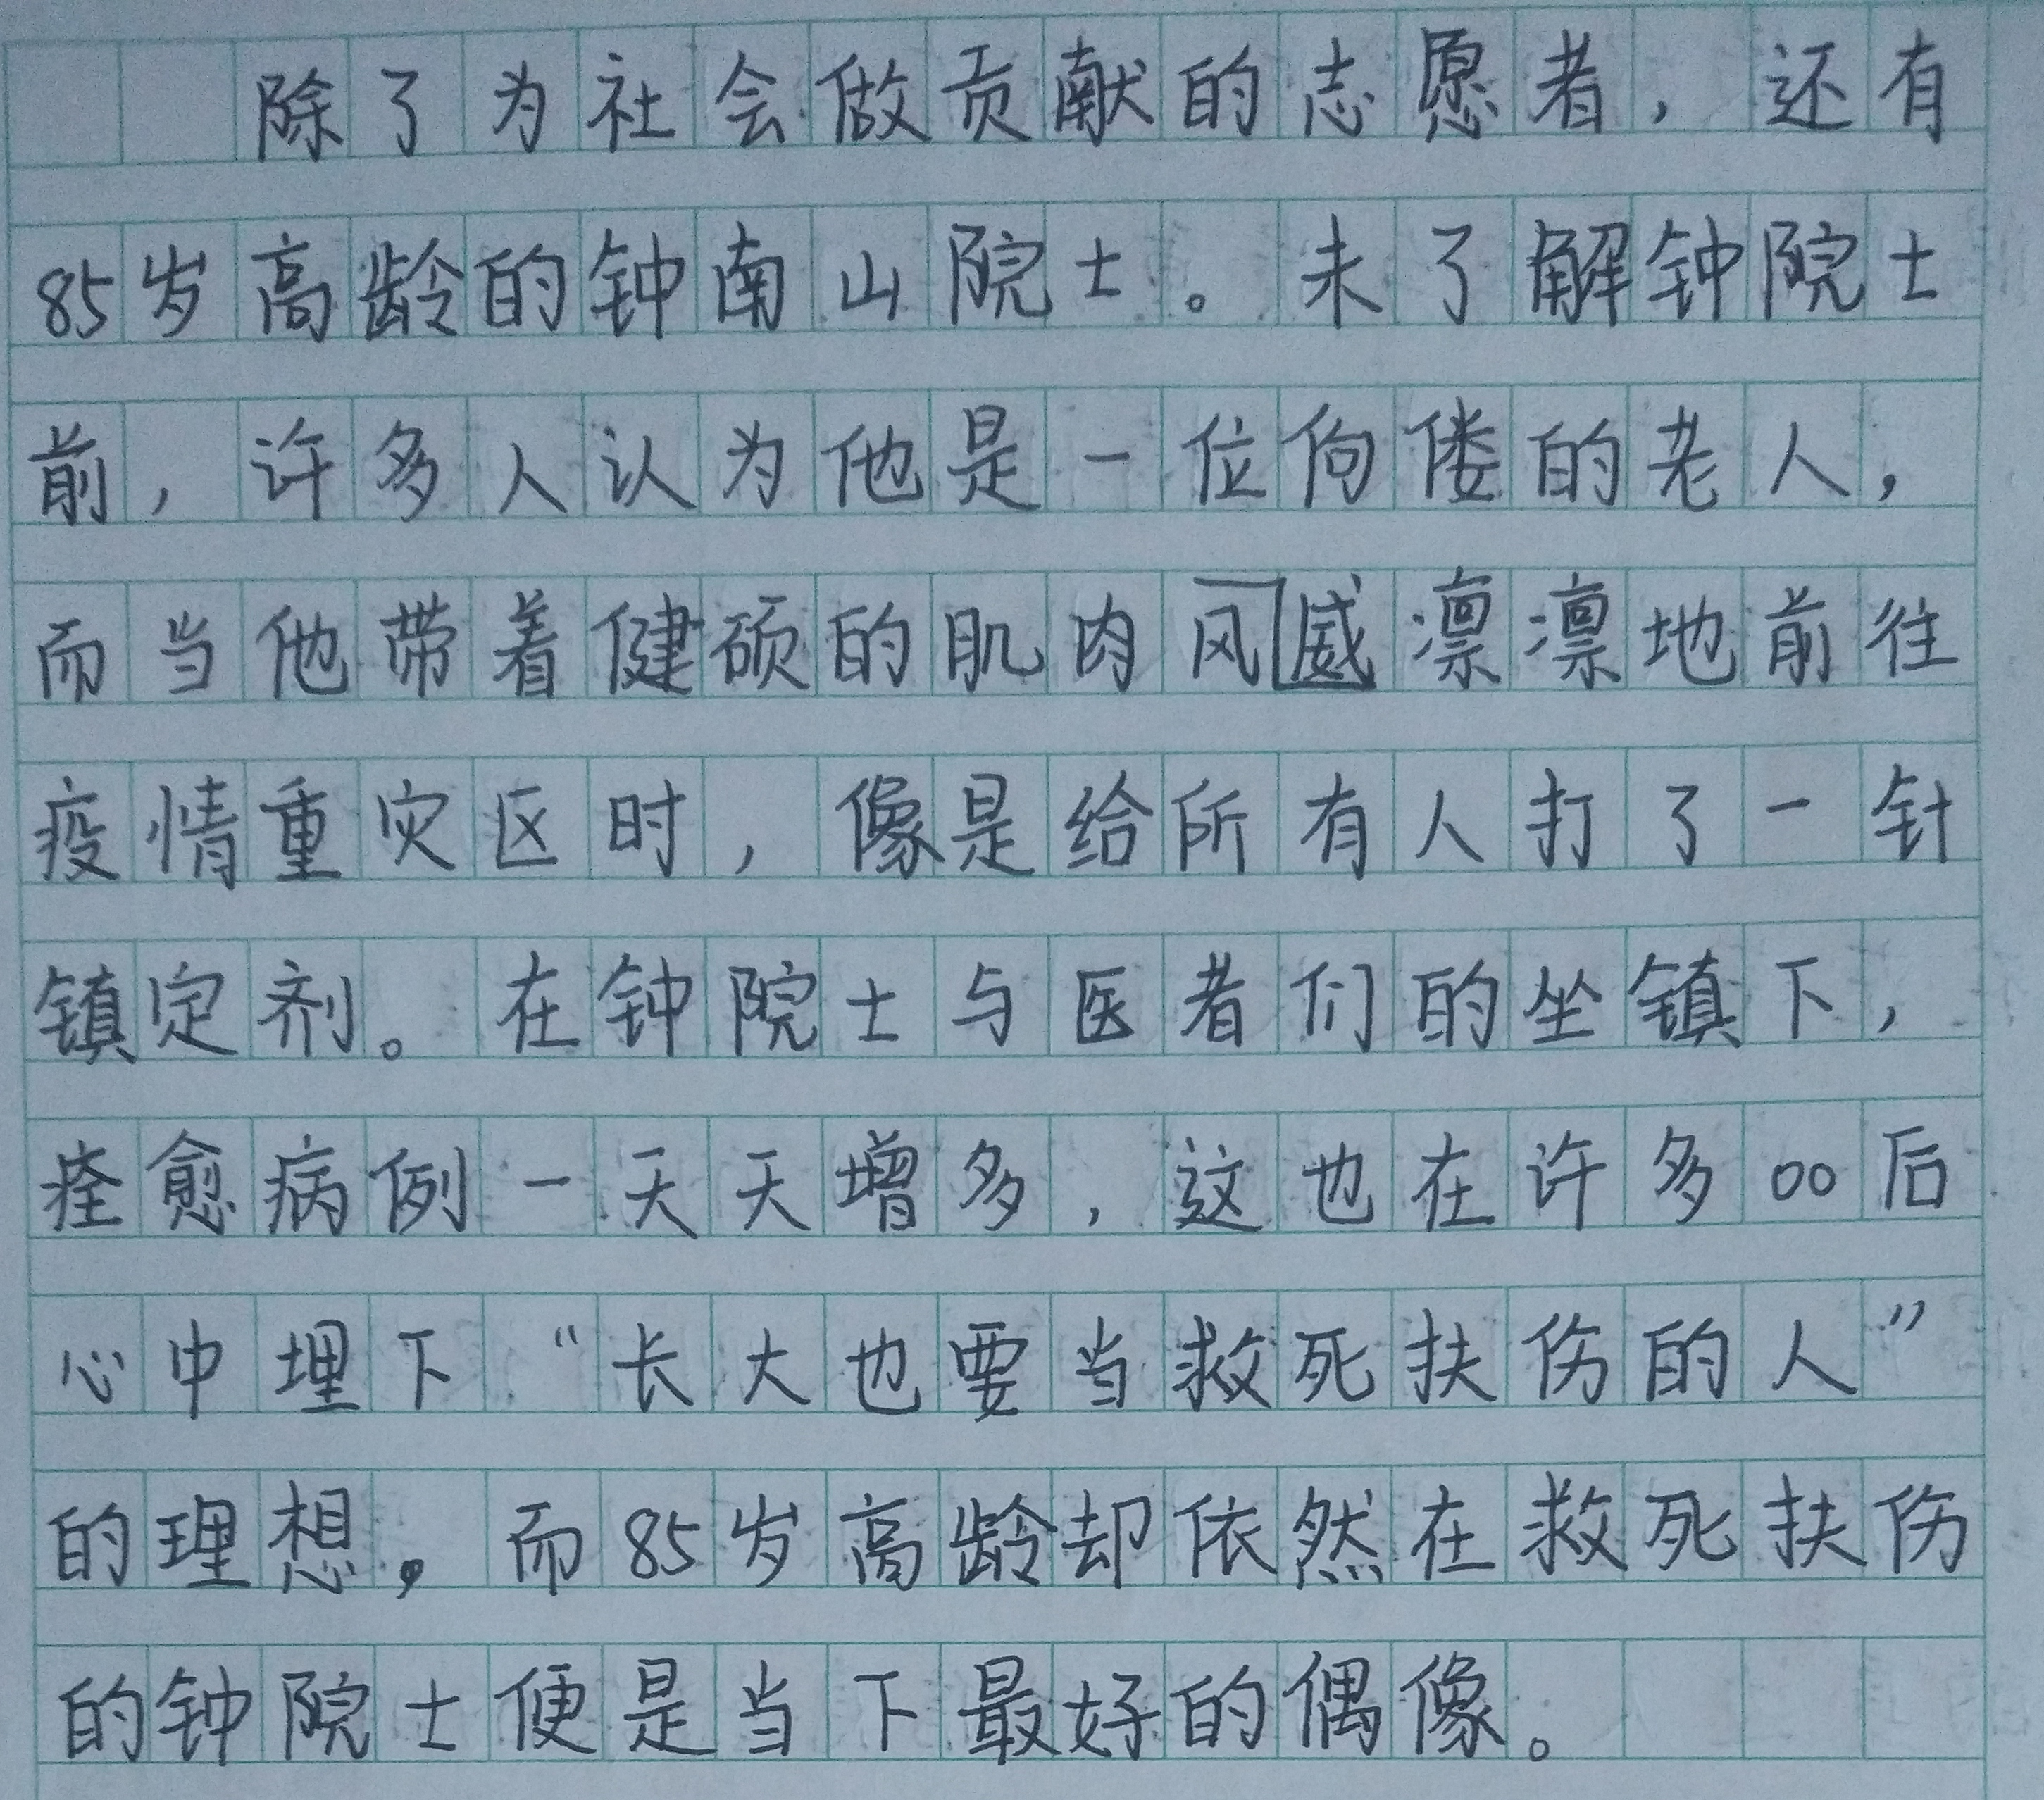 除了为社会做贡献的志愿者，还有
85岁高龄的钟南山院士。未了解钟院士
前，许多人认为他是一位佝偻的老人，
而当他带着健硕的肌肉风威凛凛地前往
疫情重灾区时，像是给所有人打了一针
镇定剂。在钟院士与医者们的坐镇下，
痊愈病例一天天增多，这也在许多00后
心中埋下“长大也要当救死扶伤的人”
的理想，而85岁高龄却依然在救死扶伤
的钟院士便是当下最好的偶像。